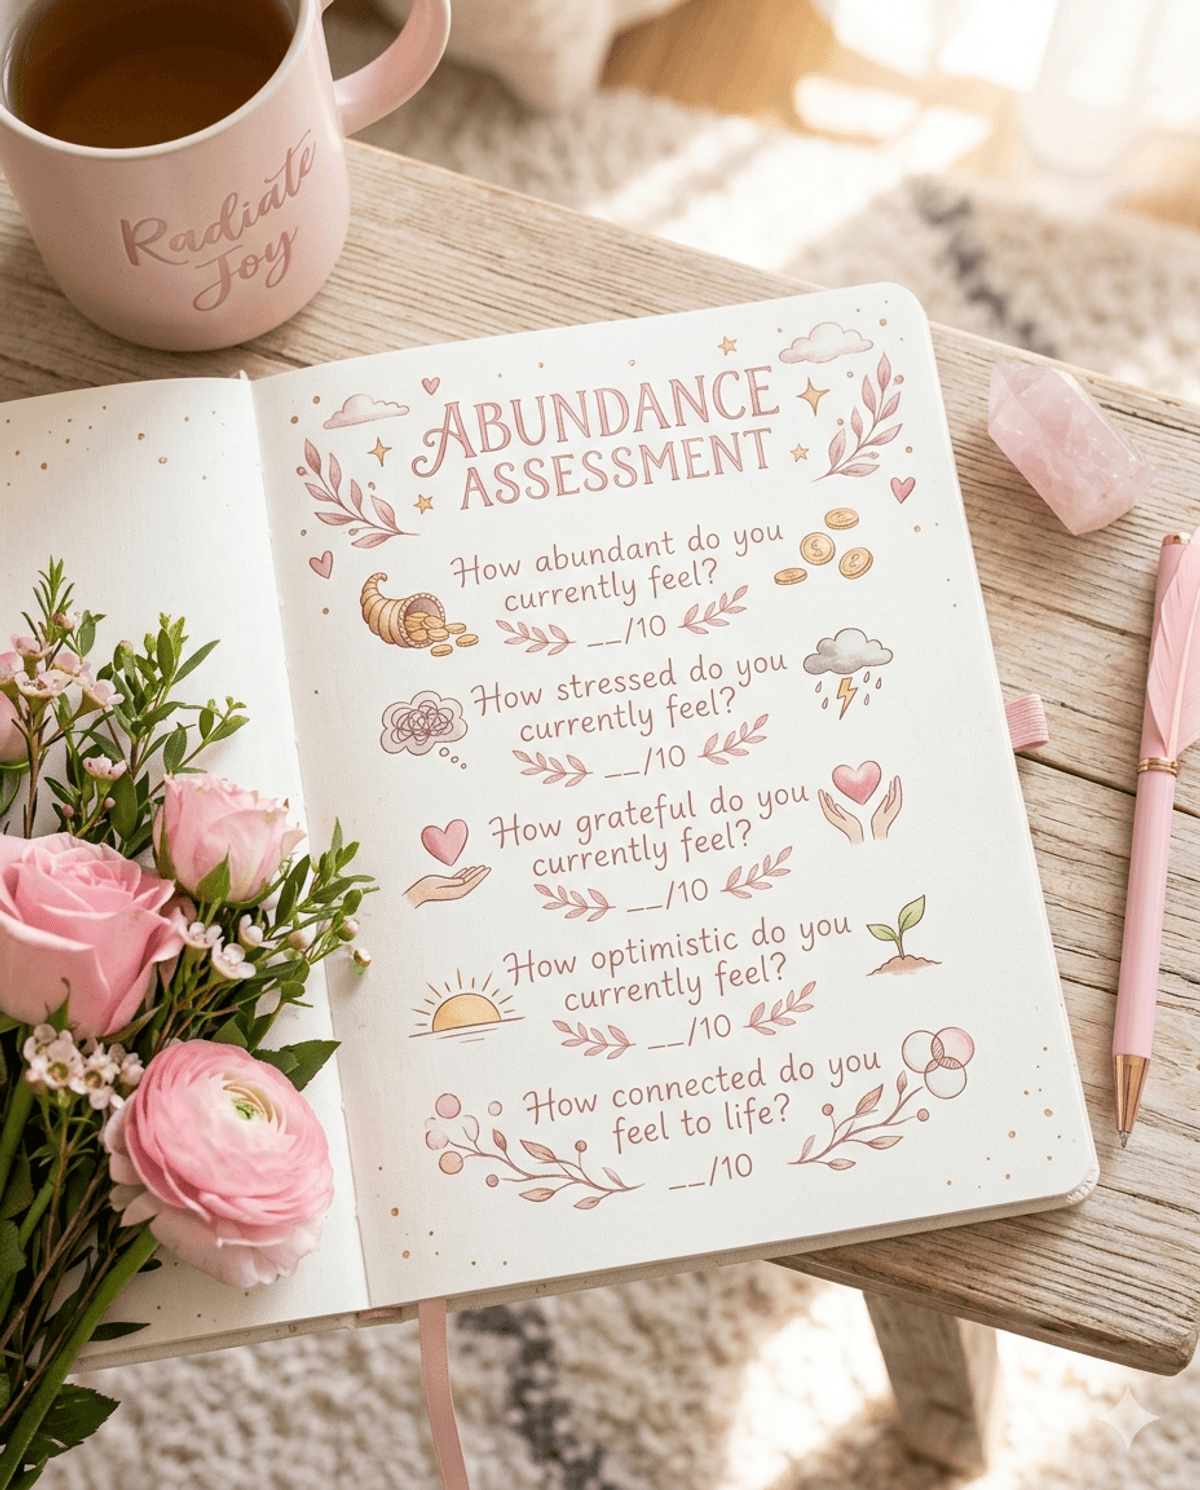 Radiate
Joy
ABUNDANCE
ASSESSMENT
How abundant do you
currently feel?
__/10
How stressed do you
currently feel?
__/10
How grateful do you
currently feel?
__/10
How optimistic do you
currently feel?
__/10
How connected do you
feel to life?
__/10